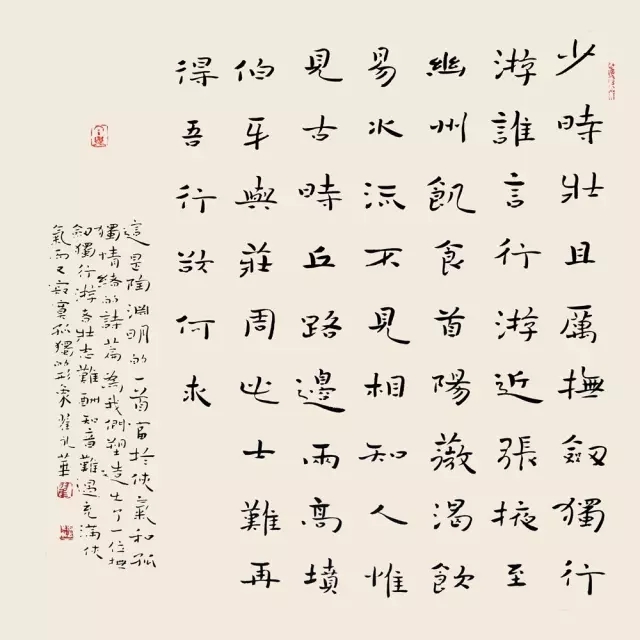 少時壯且厲撫劒獨行
游誰言行游近張掖至
幽州飢食首陽薇渴飲
易水流不見相知人惟
見古時丘路邊兩高墳
伯牙與莊周此士難再
得吾行欲何求
這是陶淵明的一首富於俠氣和孤
獨情緒的詩篇為我們塑造出了一位
劒獨行游者壯志難酬知音難遇充滿俠
氣而又寂寞孤獨的形象